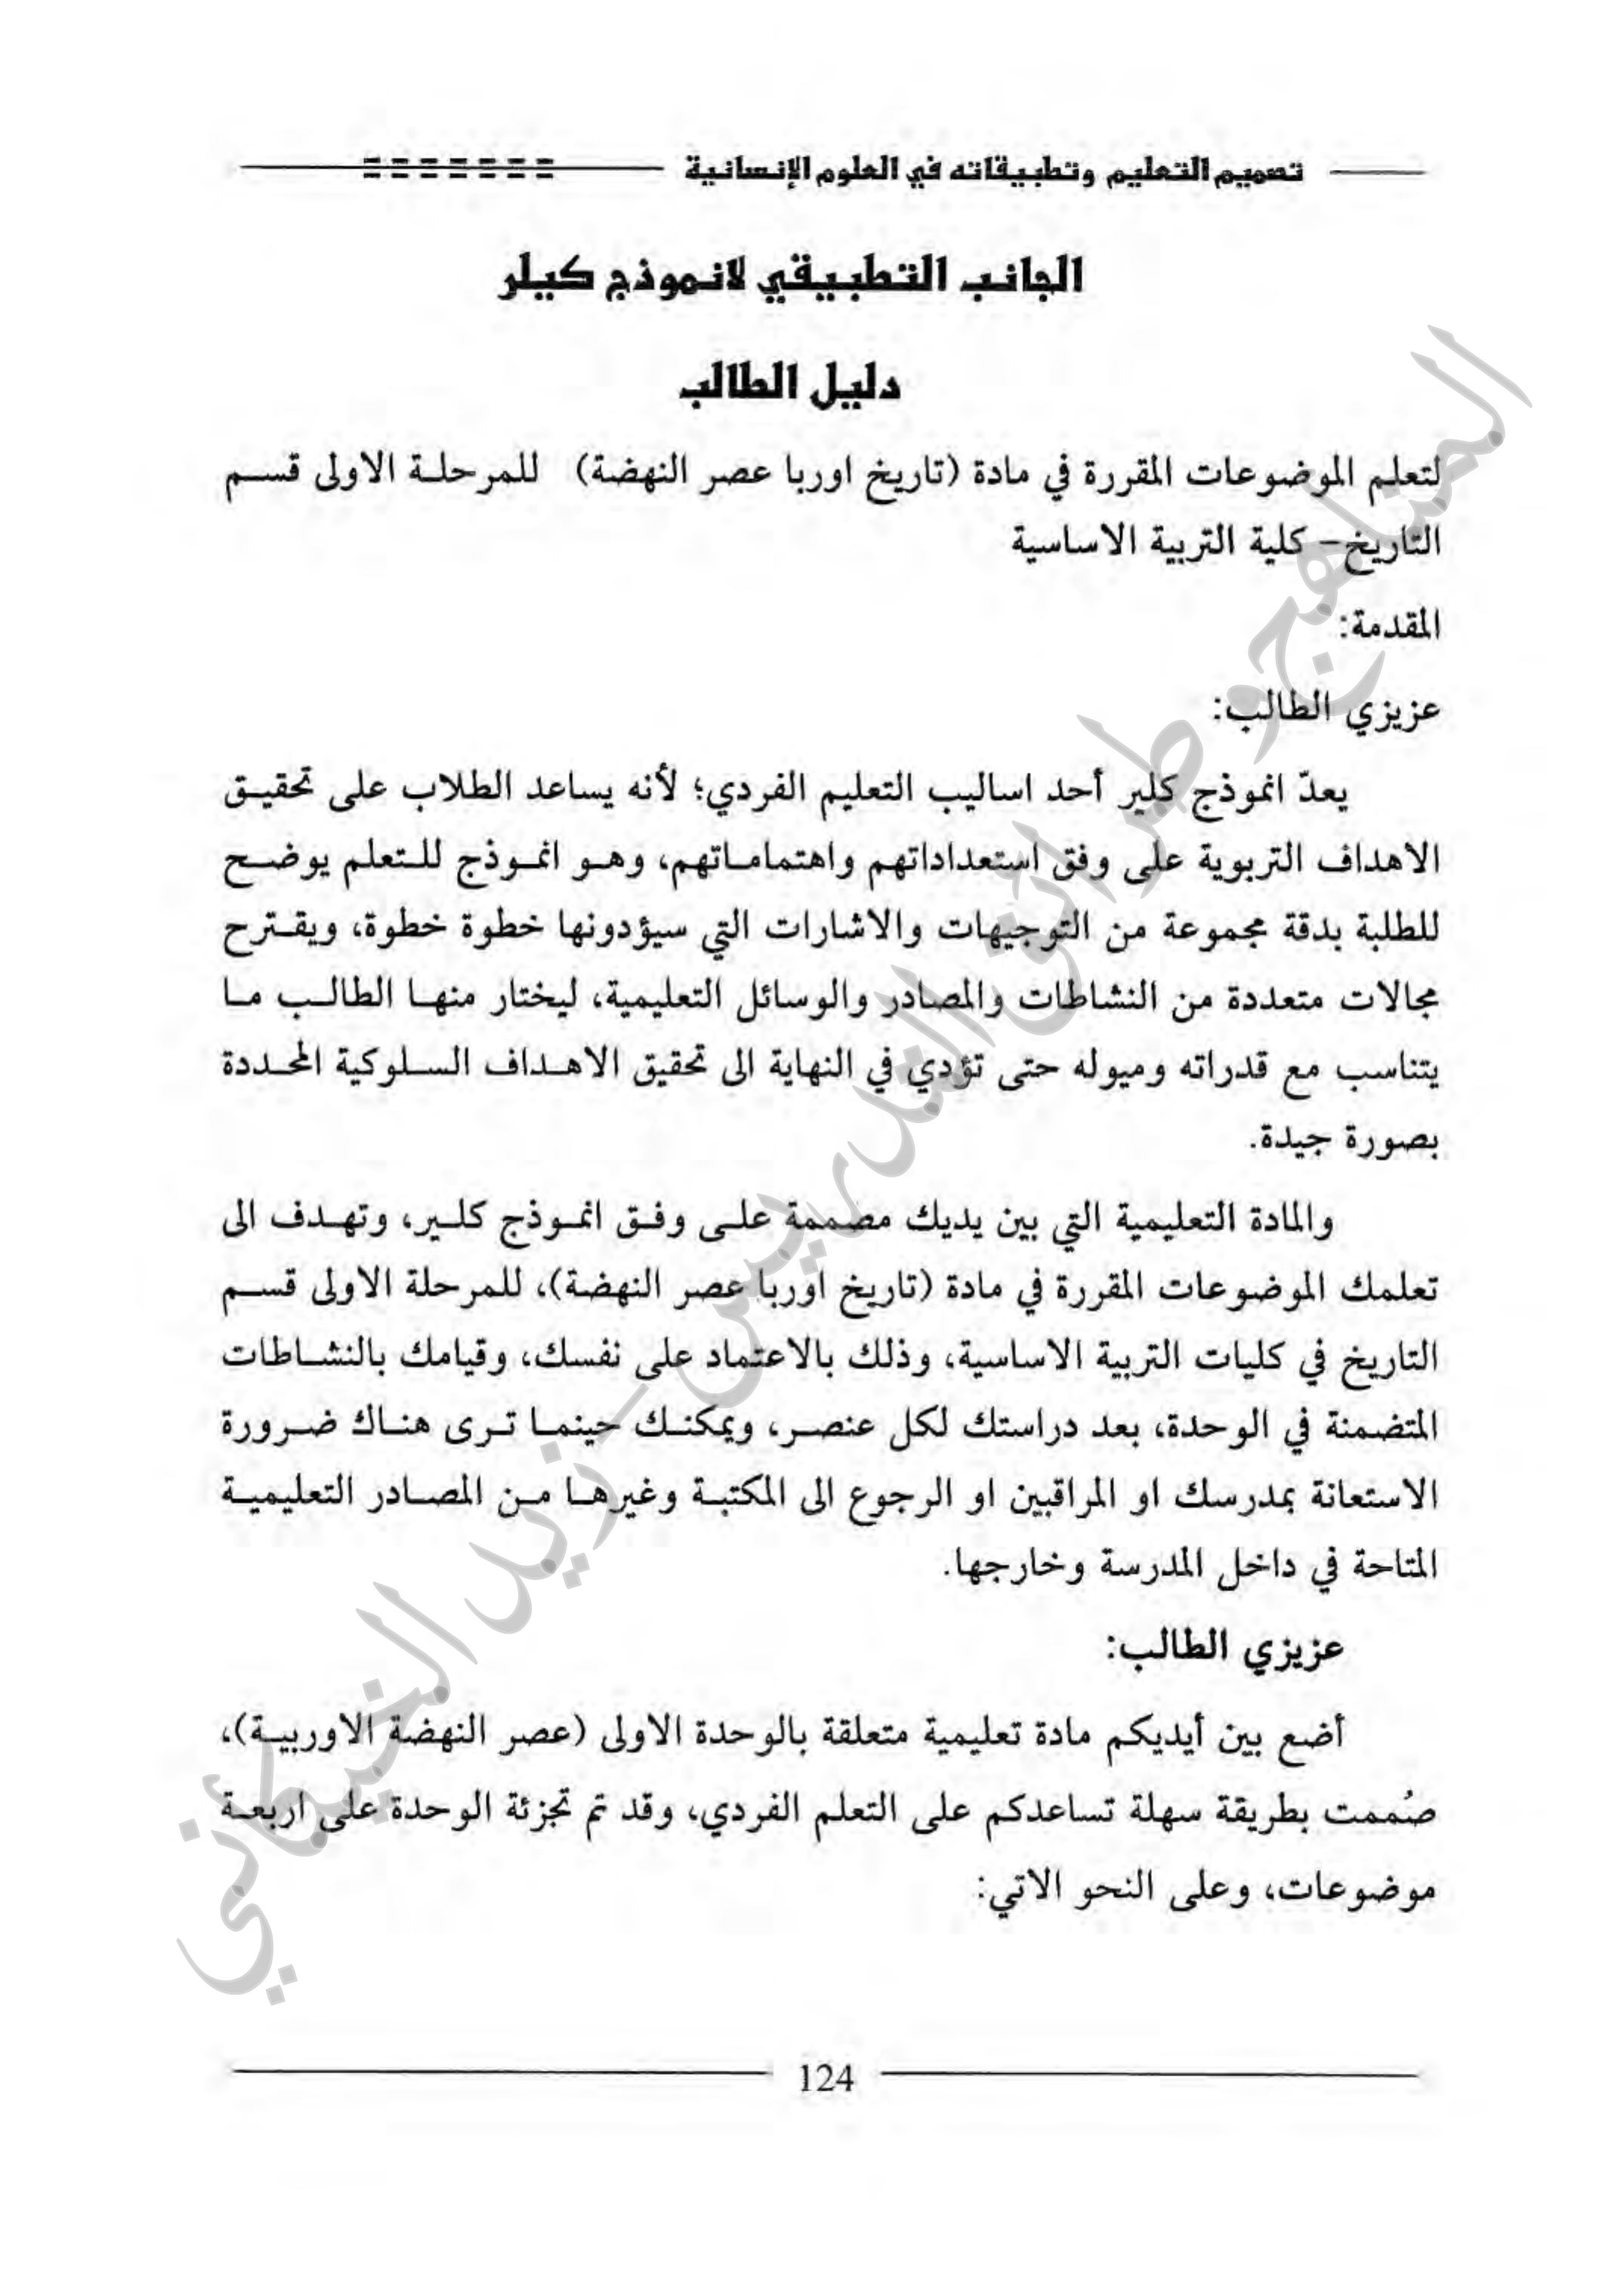 تصميم التعليم وتطبيقاته في العلوم الإنسانية
الجانب التطبيقي لانموذج كيلر
دليل الطالب
لتعلم الموضوعات المقررة في مادة (تاريخ اوربا عصر النهضة) للمرحلة الاولى قسم
التاريخ- كلية التربية الاساسية
المقدمة:
عزيزي الطالب:
يعدّ انموذج كلير أحد اساليب التعليم الفردي؛ لأنه يساعد الطلاب على تحقيق
الاهداف التربوية على وفق استعداداتهم واهتماماتهم، وهو انموذج للتعلم يوضح
للطلبة بدقة مجموعة من التوجيهات والاشارات التي سيؤدونها خطوة خطوة، ويقترح
مجالات متعددة من النشاطات والمصادر والوسائل التعليمية، ليختار منها الطالب ما
يتناسب مع قدراته وميوله حتى تؤدي في النهاية الى تحقيق الاهداف السلوكية المحددة
بصورة جيدة.
والمادة التعليمية التي بين يديك مصممة على وفق انموذج كلير، وتهدف الى
تعلمك الموضوعات المقررة في مادة (تاريخ اوربا عصر النهضة)، للمرحلة الاولى قسم
التاريخ في كليات التربية الاساسية، وذلك بالاعتماد على نفسك، وقيامك بالنشاطات
المتضمنة في الوحدة، بعد دراستك لكل عنصر، ويمكنك حينما ترى هناك ضرورة
الاستعانة بمدرسك او المراقبين او الرجوع الى المكتبة وغيرها من المصادر التعليمية
المتاحة في داخل المدرسة وخارجها.
عزيزي الطالب:
أضع بين أيديكم مادة تعليمية متعلقة بالوحدة الاولى (عصر النهضة الاوربية)،
صُممت بطريقة سهلة تساعدكم على التعلم الفردي، وقد تم تجزئة الوحدة على اربعة
موضوعات، وعلى النحو الاتي:
124
المناهج وطرائق التدريس - زيد الخيكاني